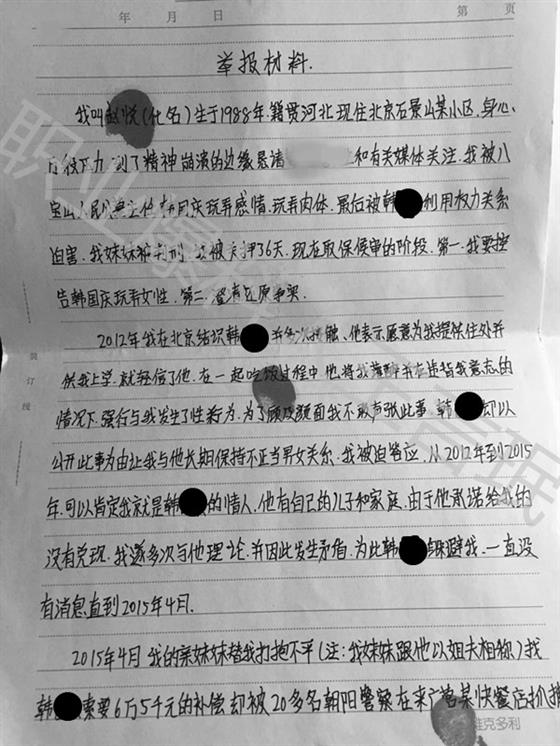 年 月 日 第 页
举报材料.
我叫赵悦(化名)生于1988年.籍贯河北现住北京石景山某小区.身心、
压力 到了精神崩溃的边缘恳请 和有关媒体关注.我被八
宝山人民 国庆玩弄感情.玩弄肉体.最后被韩 利用权力关系
迫害.我妹妹被判刑 被关押36天.现在取保候审的阶段.第一.我要控
告韩国庆玩弄女性.第二.澄清还原事实.
2012年我在北京结识韩 并多次接触、他表示愿意为我提供住处并
供我上学.就轻信了他.在一起吃饭过程中他将我灌醉并在违背我意志的
情况下.强行与我发生了性行为.为了顾及颜面我不敢声张此事 韩 却以
公开此事为由让我与他长期保持不正当男女关系.我被迫答应.从2012年到2015
年.可以肯定我就是韩 的情人.他有自己的儿子和家庭.由于他承诺给我的
没有兑现.我遂多次与他理论.并因此发生矛盾.为此韩 躲避我.一直没
有消息直到2015年4月.
2015年4月 我的亲妹妹替我打抱不平(注:我妹妹跟他以姐夫相称)找
韩 索要6万5千元的补偿 却被20多名朝阳警察在来广营某快餐店抓捕
装订线
维克多利
职业